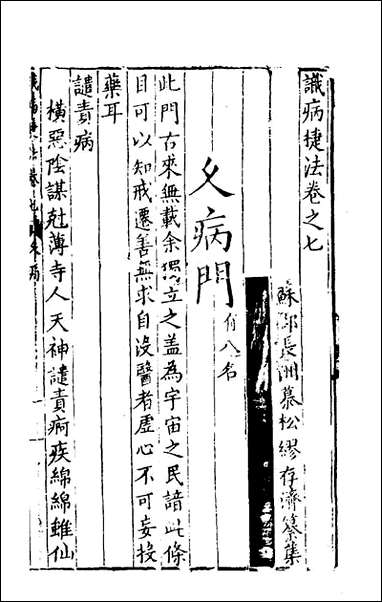 識病捷法卷之七
蘇郡長洲慕松繆存濟纂集
夂病門
此門古來無載余獨立之蓋為宇宙之民諳此條
目可以知戒遷善無求自沒醫者虛心不可妄投
藥耳
譴責病
橫惡陰謀尅薄寺人天神譴責痾疾綿綿雖仙